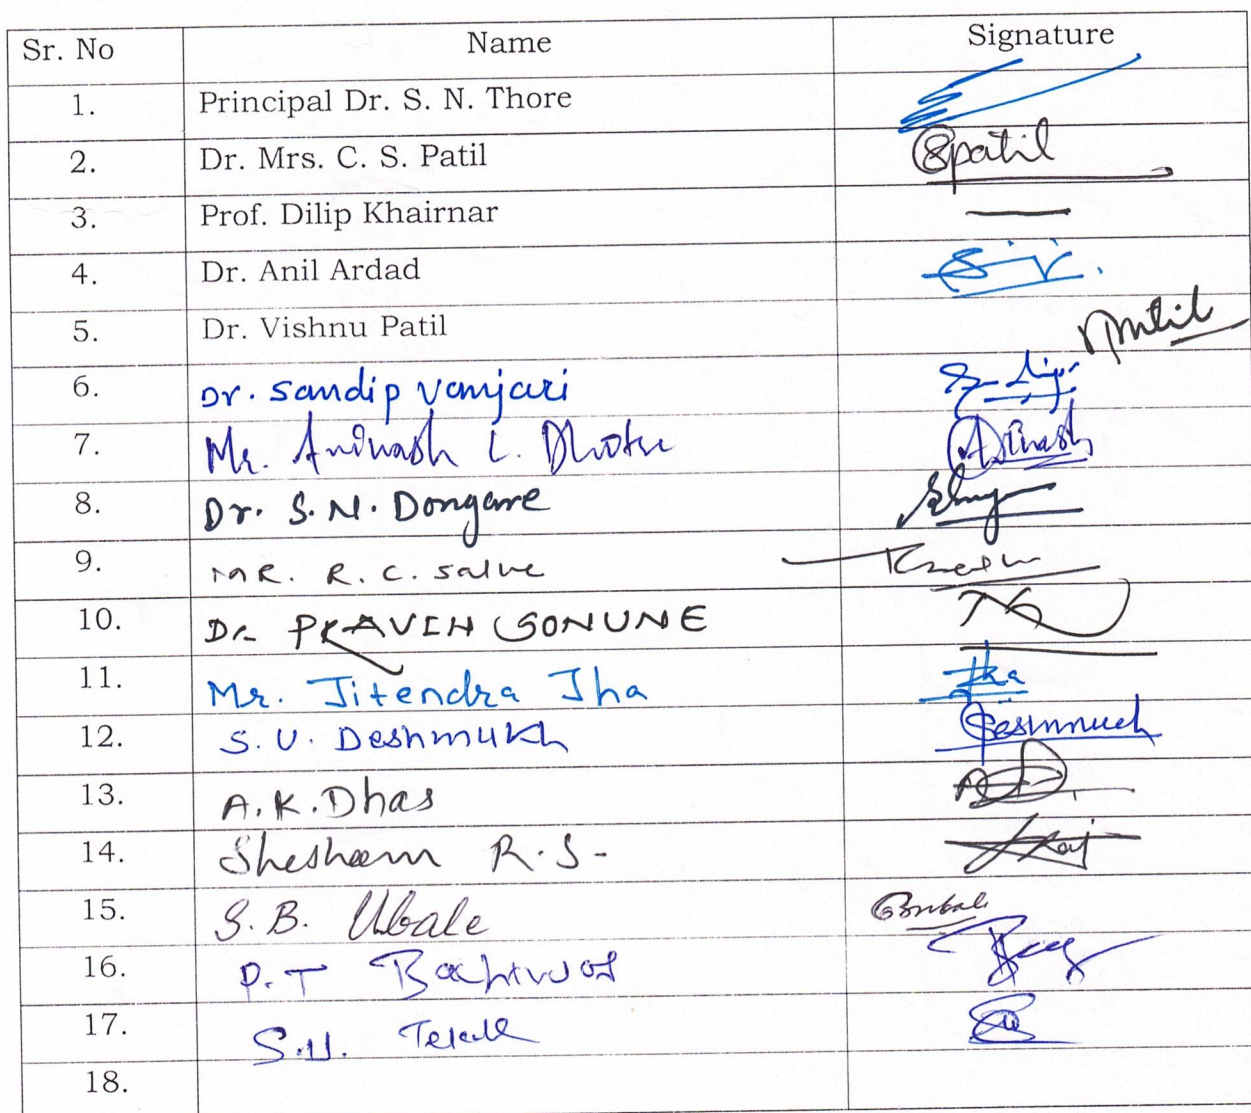 Sr. No Name Signature
1. Principal Dr. S. N. Thore
2. Dr. Mrs. C. S. Patil Spatil
3. Prof. Dilip Khairnar
4. Dr. Anil Ardad
5. Dr. Vishnu Patil
6. Dr. Sandip Vanjari
7. Mr. Avinash L.
8. Dr. S. N. Dongare
9. MR. R. C. Salve
10. Dr PRAVEEN SONUNE
11. Mr. Jitendra Jha Jha
12. S. U. Deshmukh
13. A. K. Dhas
14. R. S.
15. S. B. Ubale
16. P. T
17.
18.